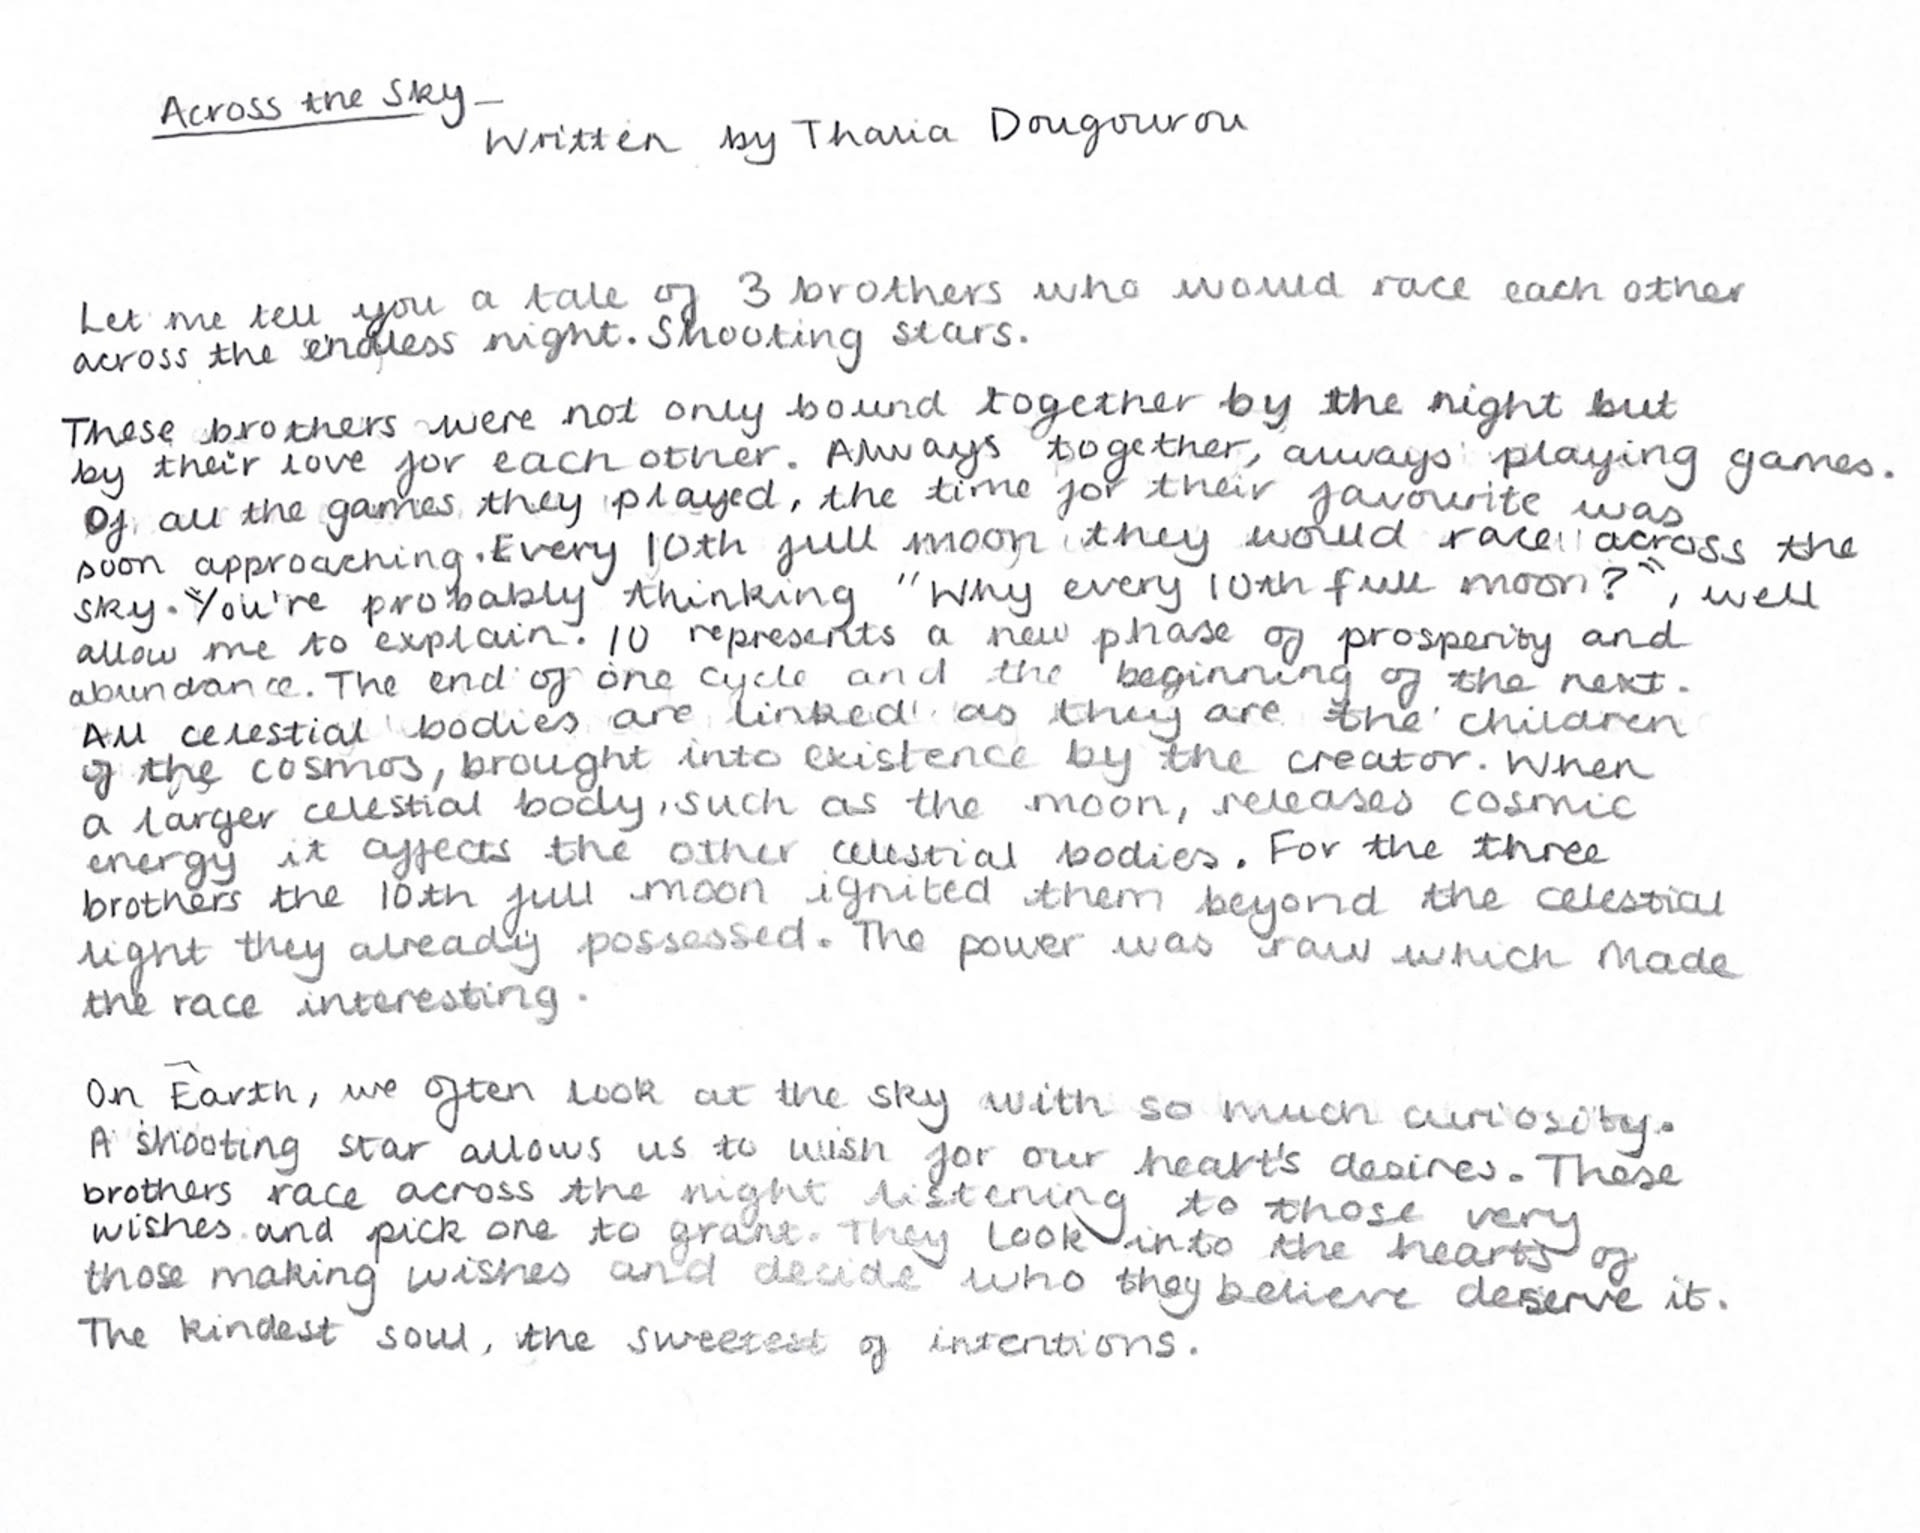 Across the Sky –
Written by Thalia Dougourou
Let me tell you a tale of 3 brothers who would race each other
across the endless night. Shooting stars.
These brothers were not only bound together by the night but
by their love for each other. Always together, always playing games.
Of all the games they played, the time for their favourite was
soon approaching. Every 10th full moon they would race across the
sky. "You're probably thinking "Why every 10th full moon?"", well
allow me to explain. 10 represents a new phase of prosperity and
abundance. The end of one cycle and the beginning of the next.
All celestial bodies are linked as they are the children
of the cosmos, brought into existence by the creator. When
a larger celestial body, such as the moon, releases cosmic
energy it affects the other celestial bodies. For the three
brothers the 10th full moon ignited them beyond the celestial
light they already possessed. The power was raw which made
the race interesting.
On Earth, we often look at the sky with so much curiosity.
A shooting star allows us to wish for our heart's desires. These
brothers race across the night listening to those very
wishes and pick one to grant. They look into the hearts of
those making wishes and decide who they believe deserve it.
The kindest soul, the sweetest of intentions.